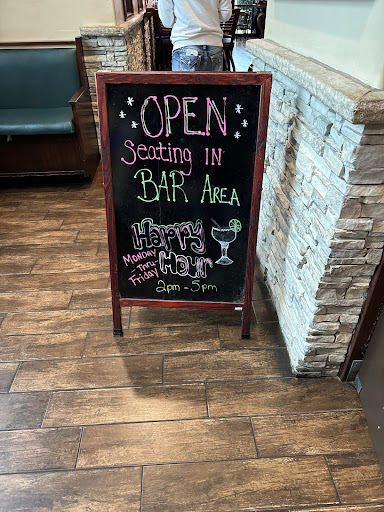 OPEN
Seating IN
BAR AREA
Happy
Hour
MONDAY
- Thru -
Friday
2pm - 5pm